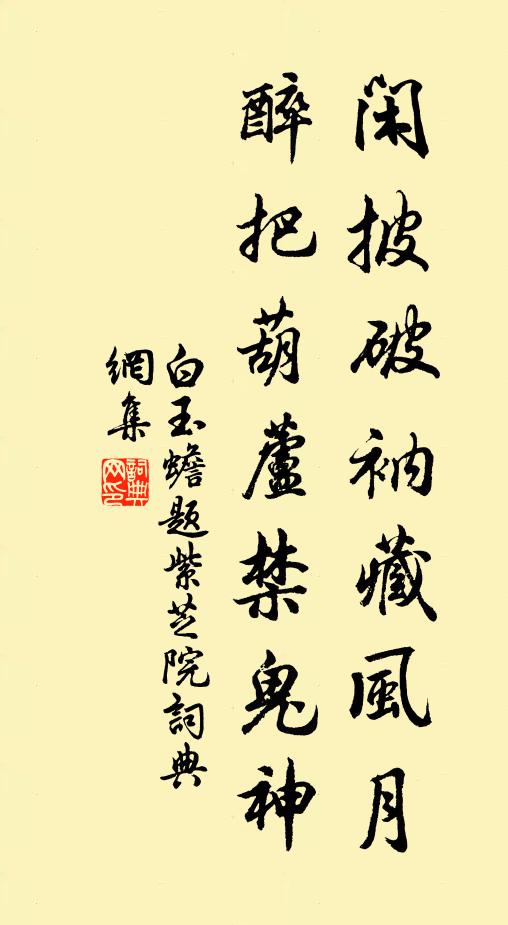 闲披破衲藏風月
醉把葫蘆禁鬼神
白玉蟾題紫芝院詞典
網集
詞典網印